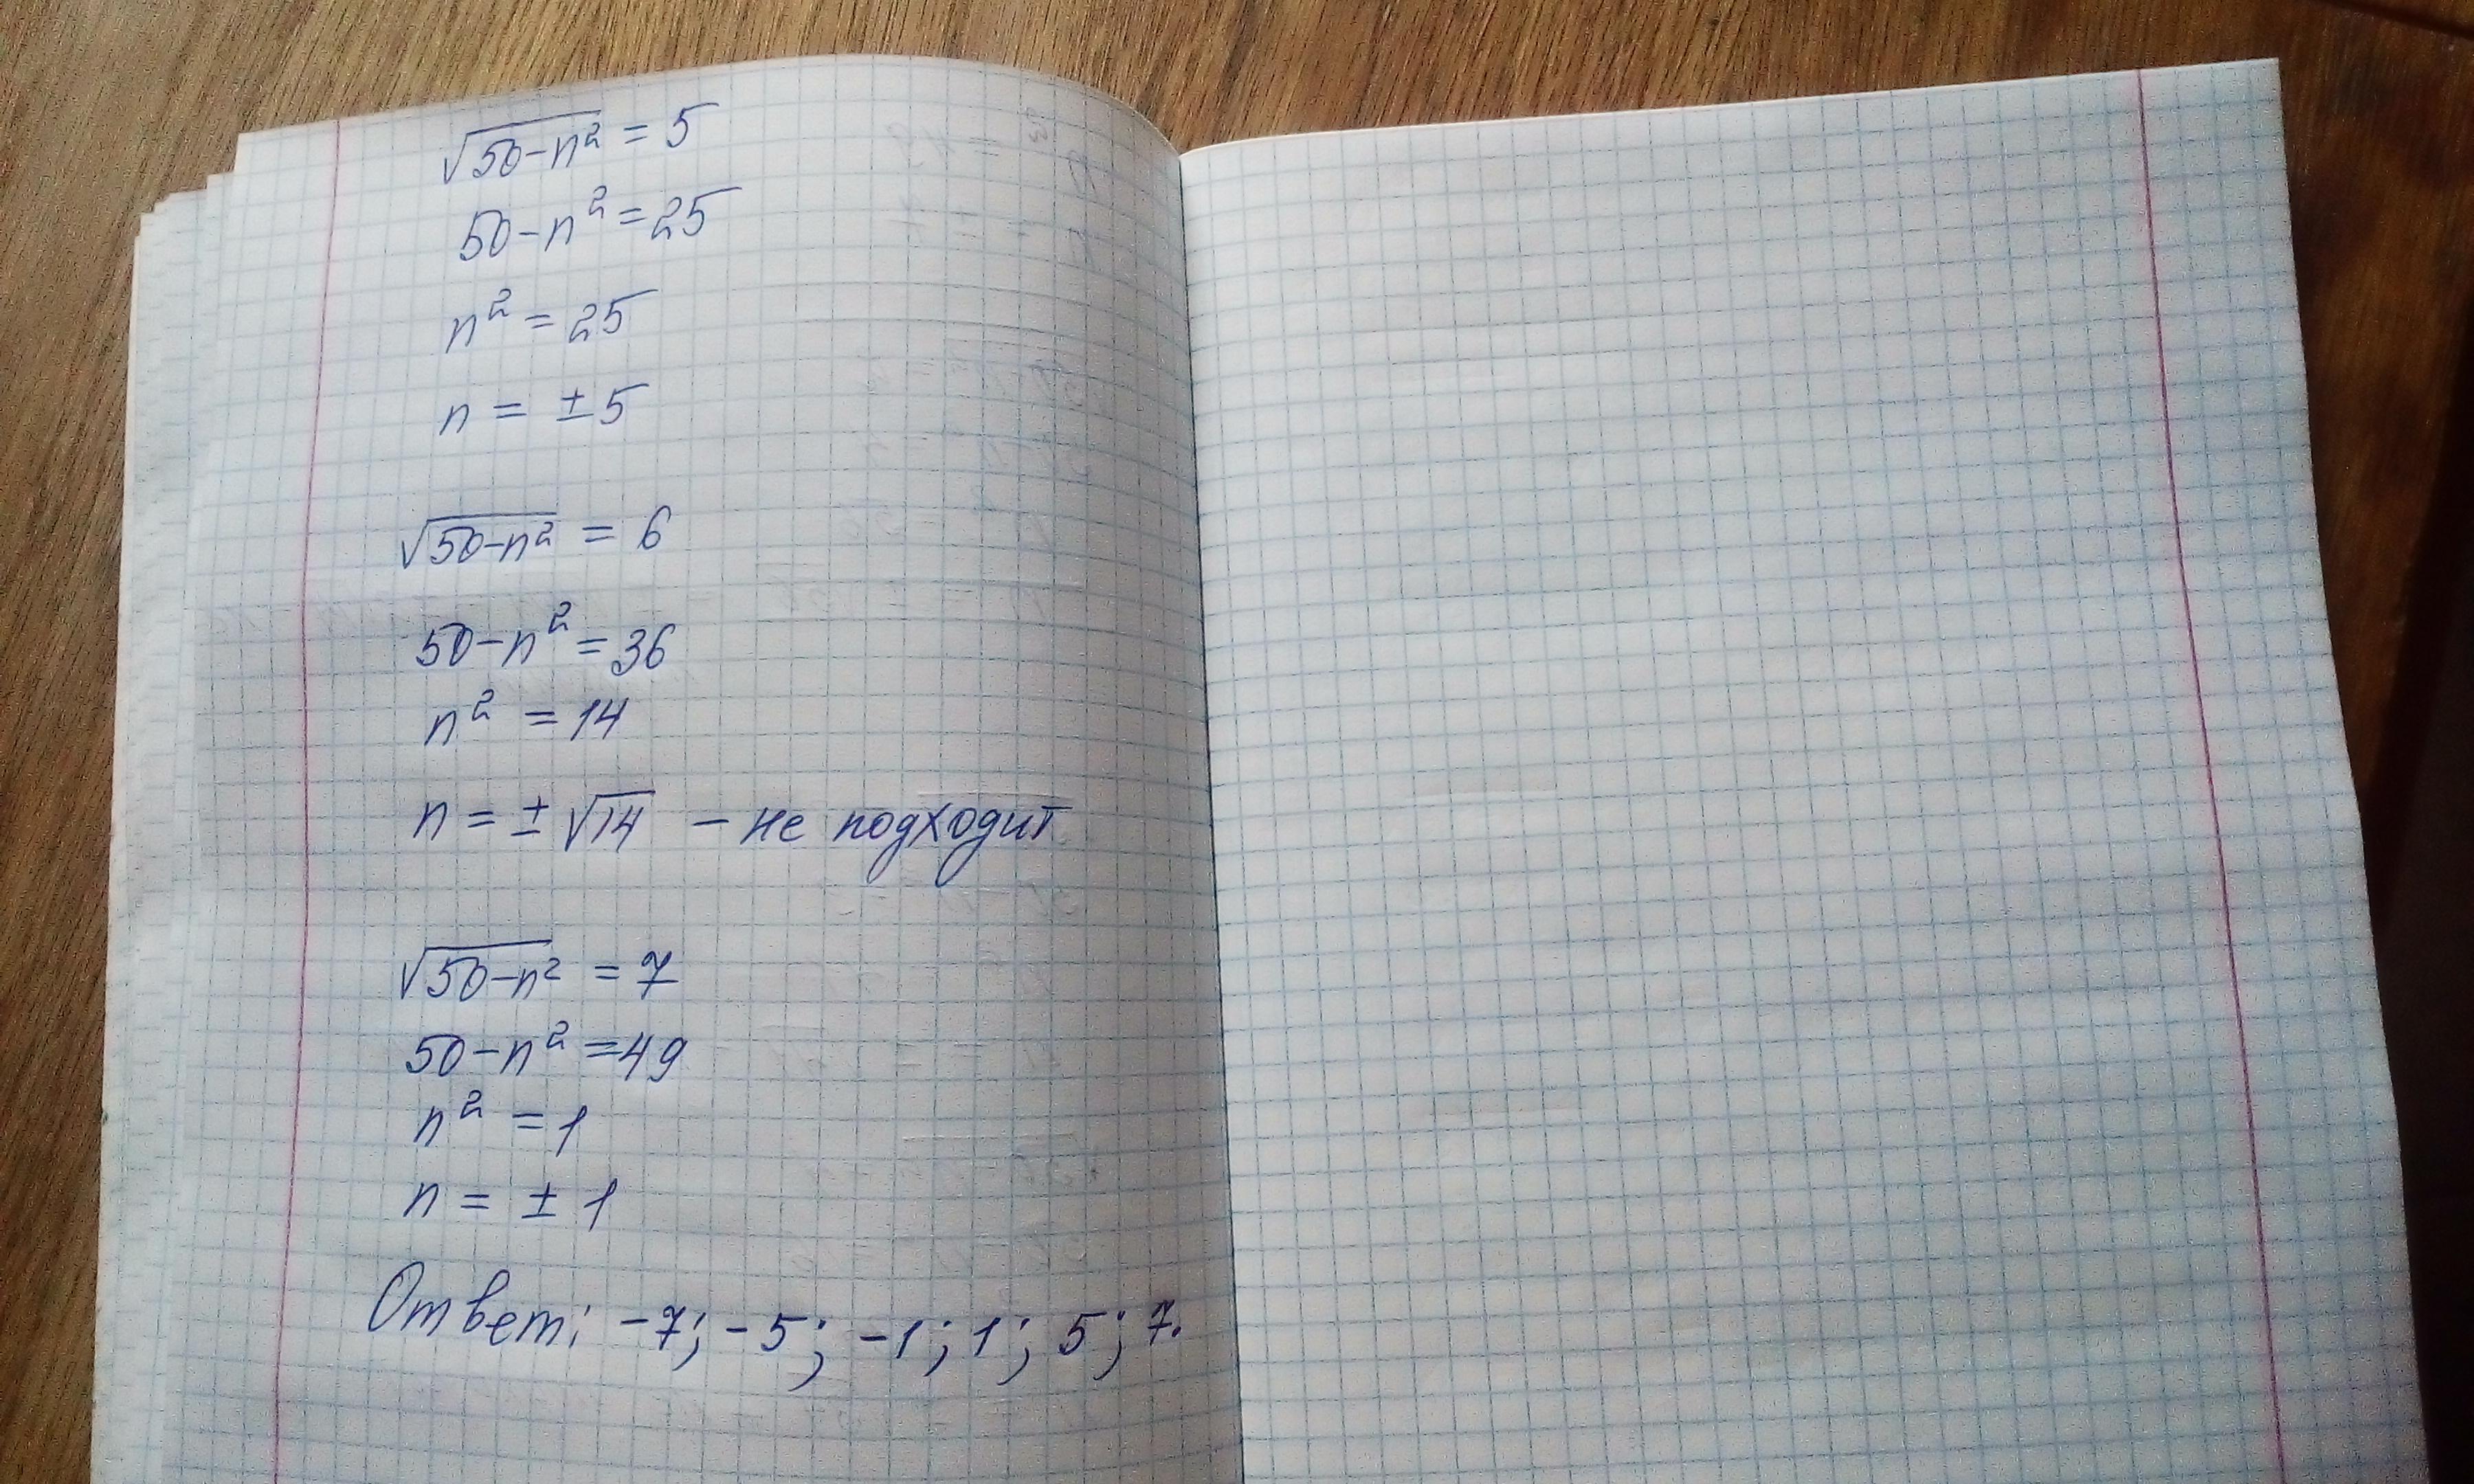 √50-n² = 5
50-n² = 25
n² = 25
n = ±5
√50-n² = 6
50-n² = 36
n² = 14
n = ± √14 - не подходит
√50-n² = 7
50-n² = 49
n² = 1
n = ± 1
Ответ: -7; -5; -1; 1; 5; 7.